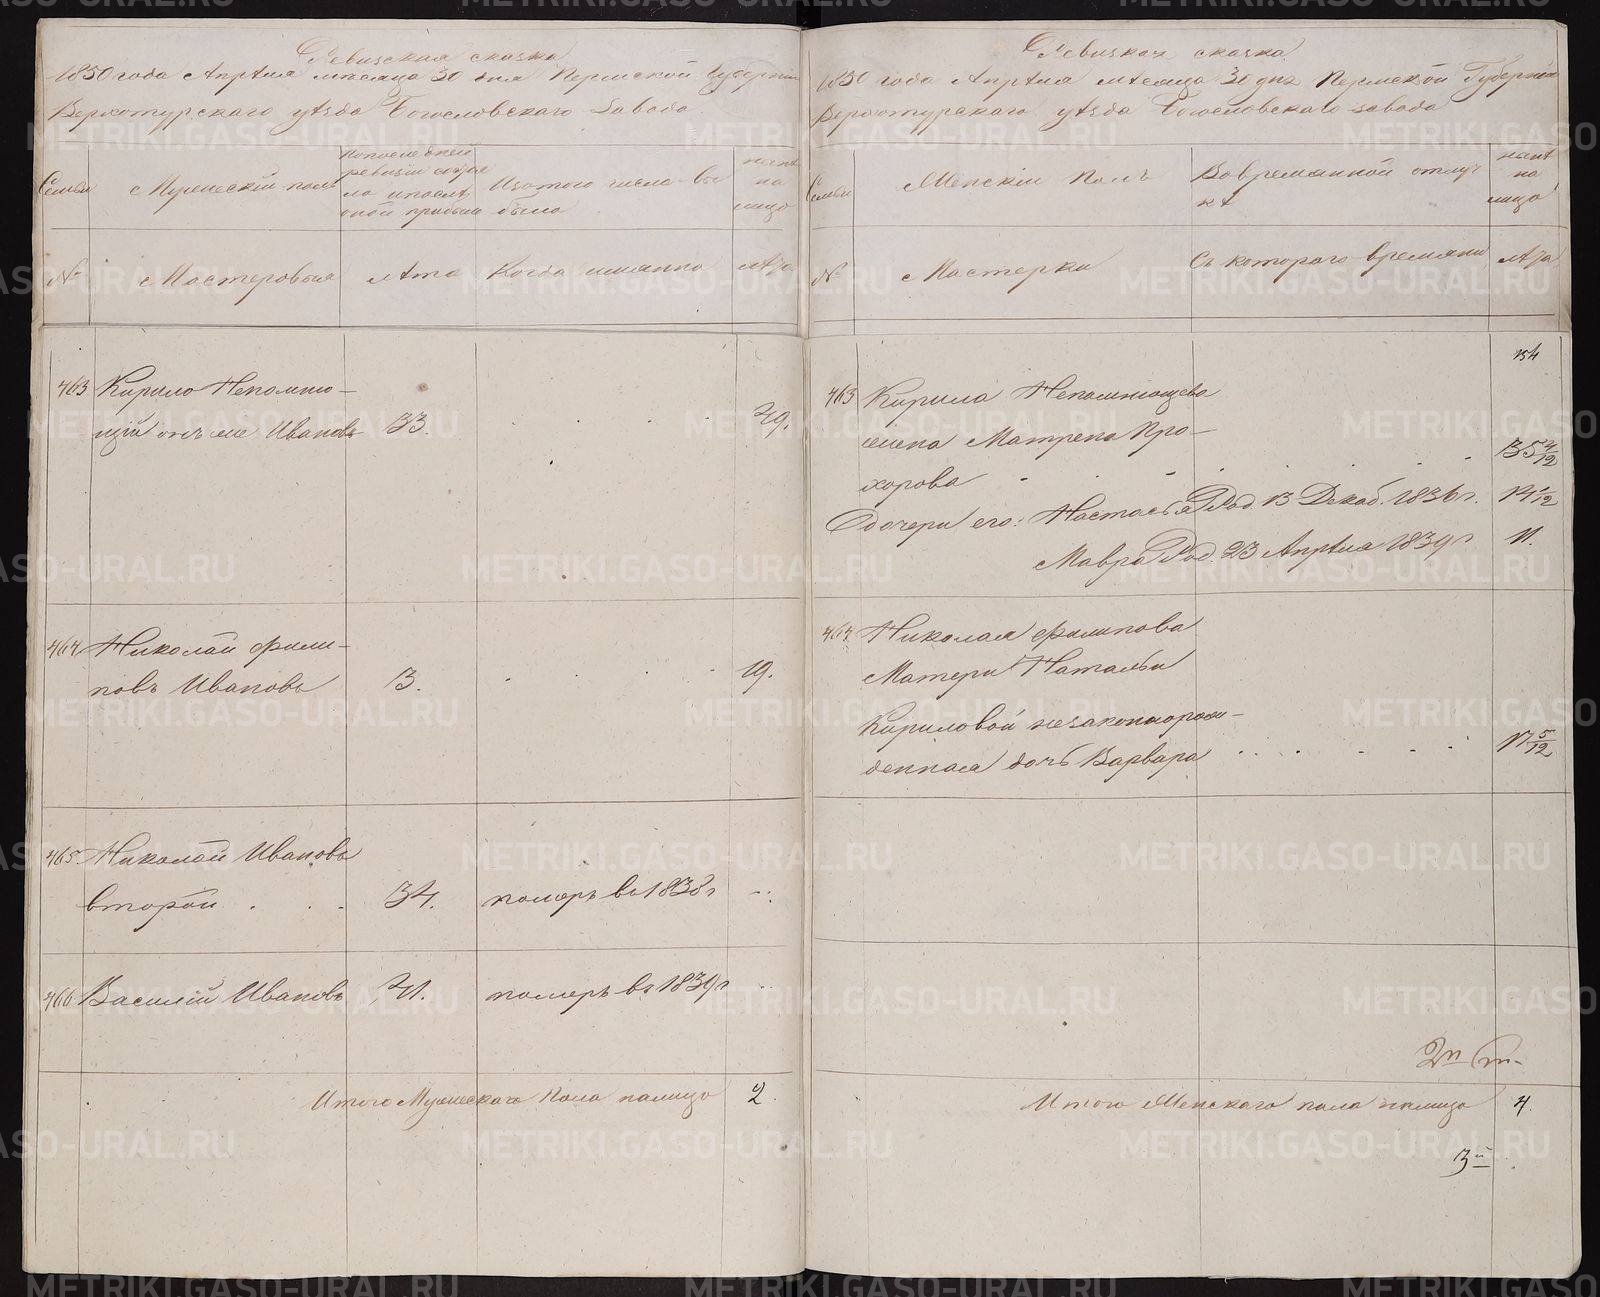 Ревизская сказка
1850 года Апрѣля мѣсяца 30 дня Пермской Губерніи
Верхотурскаго уѣзда Богословскаго Завода
Семьи
Мужескій полъ
По последней
ревизіи состоя
ло и послѣ
оной прибыло
Изъ того числа вы
было
налѣ
по
лицо
№
Мастеровыя
Лѣта
Когда имянно
Лѣта
463
Кирило Непомню-
щій онъ же Ивановъ
33.
49.
464
Николай Фили-
повъ Ивановъ
3.
19.
465
Николай Ивановъ
второй
34.
померъ въ 1838 г
466
Василій Ивановъ
41.
померъ въ 1839 г
Итого Мужескаго пола налицо
2.
Ревизкая сказка
1850 года Апрѣля мѣсяца 30 дня Пермской Губерніи
Верхотурскаго уѣзда Богословскаго завода
Семьи
Женскій Полъ
Во времянной отлуч
кѣ
налѣ
на
лицо
№
Мастерки
Съ котораго времяни
Лѣта
154
463
Кирила Непомнющева
жена Матрена Про-
хорова
35 4/12
Дочери его: Настасья Род. 13 Декаб. 1836 г.
Мавра Род. 23 Апрѣля 1839 г
11.
464
Николая Филипова
Матери Натальи
Кириловой незаконнорож-
денная дочь Варвара
17 5/12
Итого Женскаго пола налицо
4.
METRIKI.GASO-URAL.RU